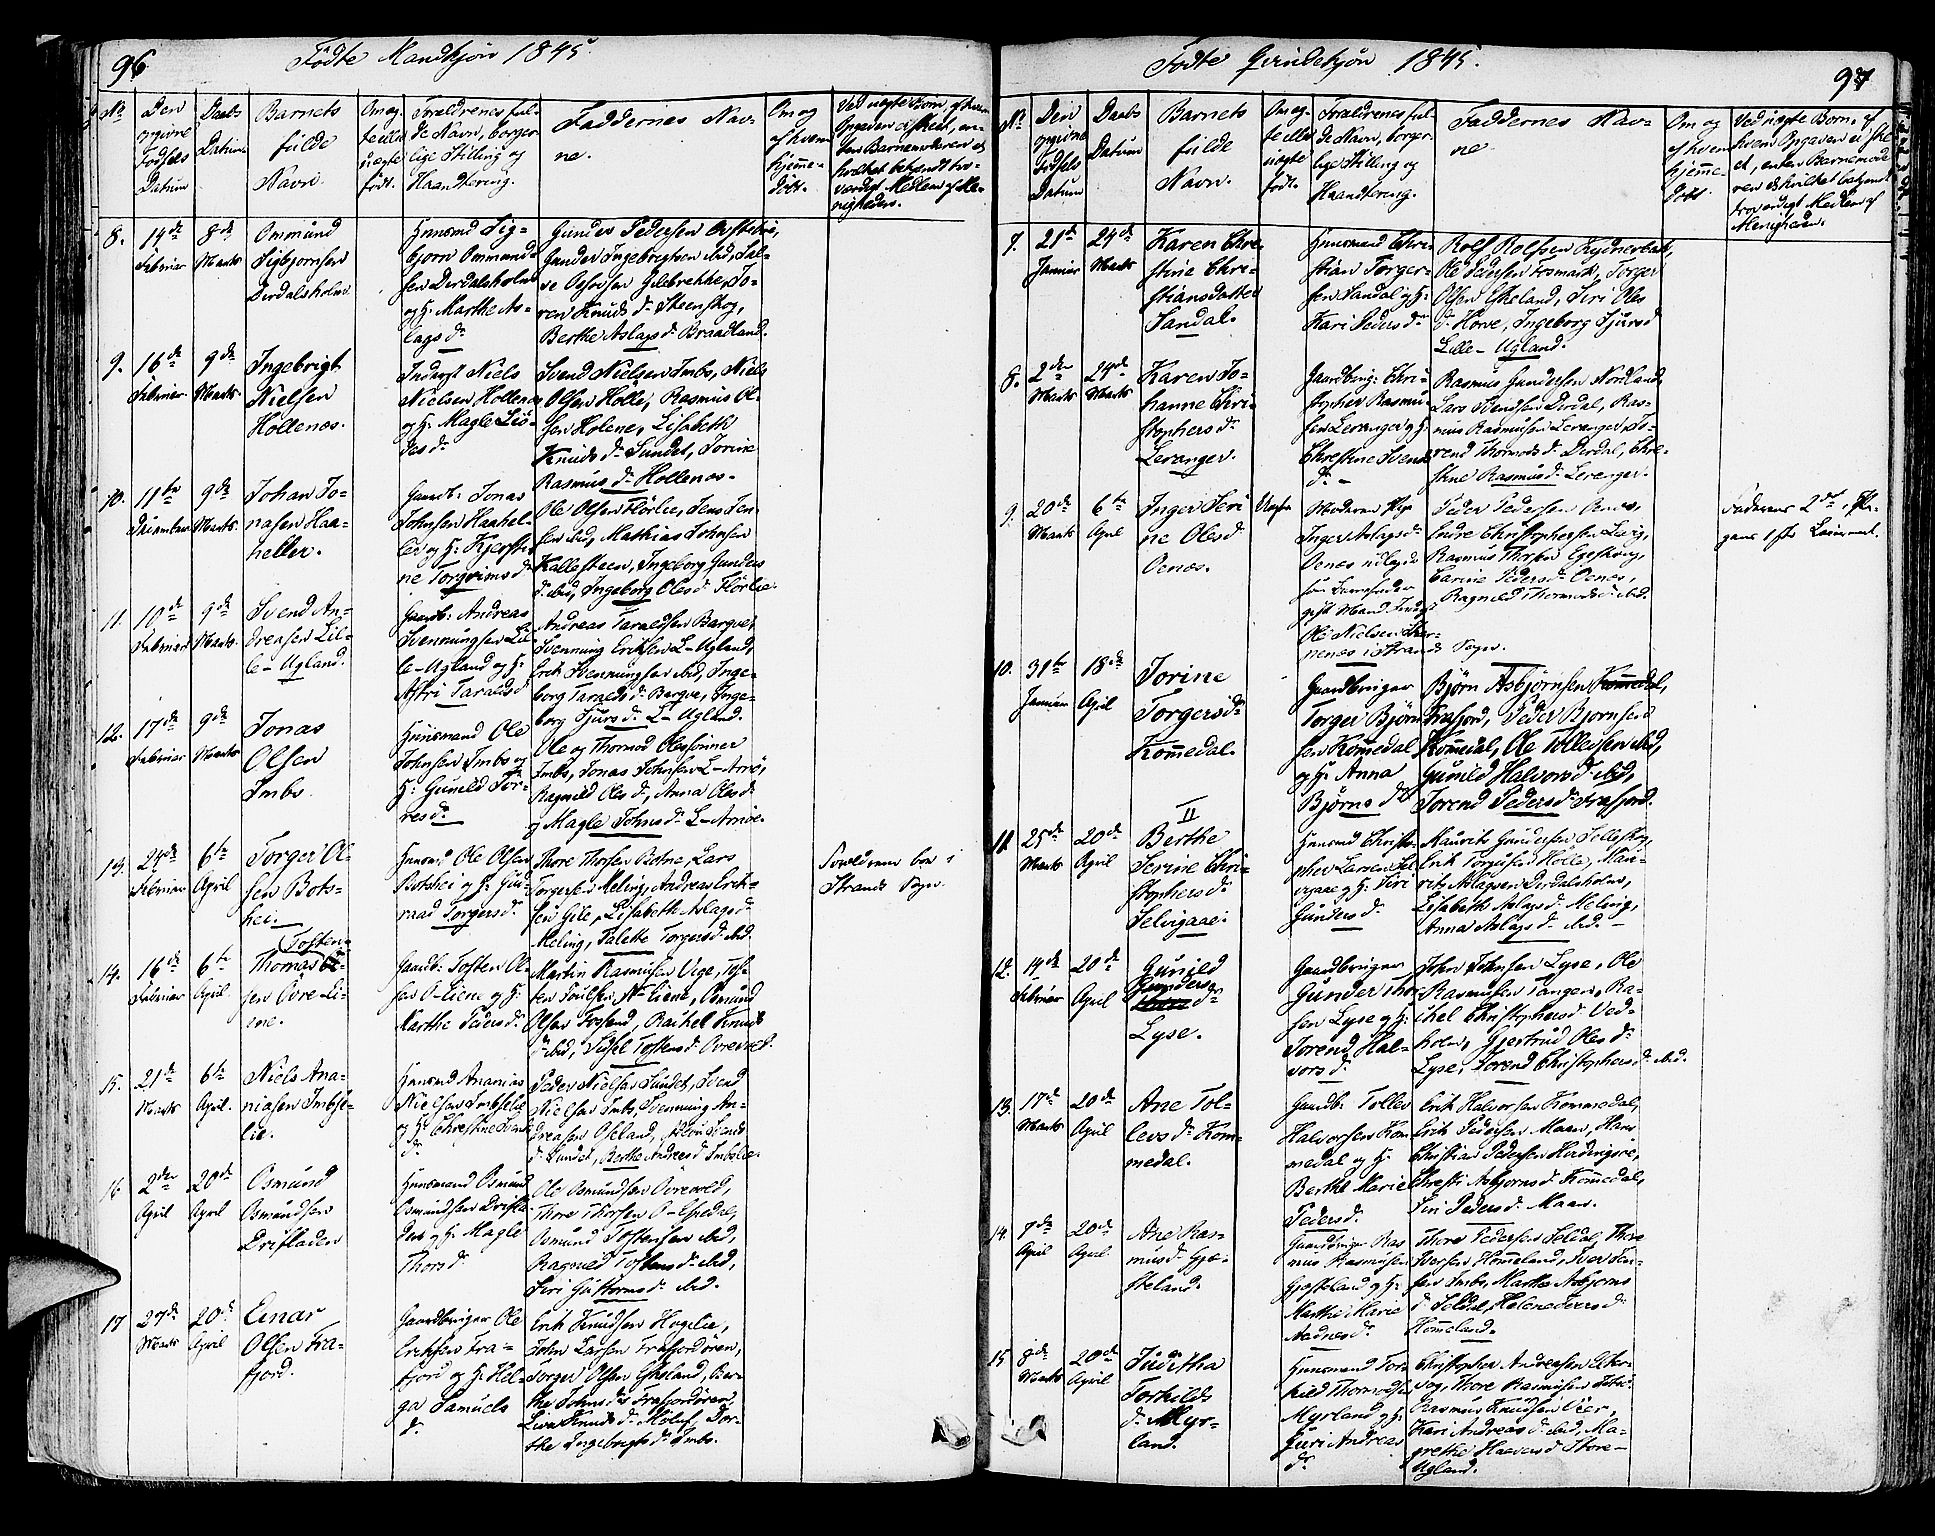 96
Födte Mandkjön 1845
No
Den
opgivne
Födsels
Datum
Daabs
Datum
Barnets
fulde
Navn.
Om æg-
te eller
uægte
födt.
Forældrenes ful-
de Navn, borger-
lige Stilling og
Haandtering.
Faddernes Nav-
ne.
Om og
af hvem
hjemme-
döbt.
8.
14de
Februar
8de
Marts
Ommund
Sigbjörnsen
Dirdalsholm
Huusmd Sig-
björn Ommund-
sen Dirdalsholm
og H. Marthe As-
lagsd.
Gunder Pedersen
Gunder Ingebrigtsen ibid, Sal-
ve Osmsen Gilebrekke, To-
ren Knuds d. Steenskog,
Berthe Aslags d. Braadland.
9.
16de
Februar
9de
Marts
Ingebrigt
Nielsen
Hollenæs.
Inderst Niels
Nielsen Hollenæs
og H. Magle
des d.
Svend Nielsen Imbs, Niels
Olsen Hölle, Rasmus Ol-
sen Holene, Lisabeth
Knuds d. Sundet, Torine
Rasmus d. Hollenæs.
10.
11te
December
9de
Marts
Johan Jo-
nasen Haa-
heller.
Gaardb: Jonas
Johnsen Haahel-
ler og H. Kjersti-
ne Torgrims d.
Ole Olsen Flörlie, Jens Jen-
sen ibid, Mathias Johnsen
Kallesteen, Ingeborg Gunders
d. ibid, Ingeborg Oles d. Flörlie.
11.
10de
Februar
9de
Marts
Svend An-
dreasen Lil-
le-Ugland.
Gaardb: Andreas
Svenningsen Lil-
le-Ugland og H.
Astri Taralds d.
Andreas Taraldsen Bargve,
Svenning Eriksen L-Ugland,
Erik Svenningsen ibid, Inge-
borg Taralds d. Bargve, Inge-
borg Sjurs d. L-Ugland.
12.
17de
Februar
9de
Marts
Jonas
Olsen
Imbs.
Huusmand Ole
Johnsen Imbs og
H. Gunild Tor-
res d.
Ole og Thormod Olessönner
Imbs, Jonas Johnsen L-Amö,
Ragnild Oles d., Anna Oles d.
og Magle Johns d. L-Amöe.
13.
24de
Februar
6te
April
Torger Ol-
sen Bots-
hei.
Huusmd Ole Olsen
Botshei og H. Gu-
raad Torgers d.
Thore Thorsen Botne, Lars
Torgersen Meling, Andreas Erik-
sen Gile, Lisabeth Aslags d.
Meling, Talette Torgers d. ibid.
Forældrene boe i
Strands Sogn.
14.
16de
Februar
6te
April
Tosten-
Thomas
sen Övre-Li-
ene.
Gaardb: Tosten Ol-
sen Ö-Liene og H.
Marthe Peders d.
Martin Rasmusen Vige, Tos-
ten Poulsen N-Liene, Osmund
Olsen Fossand, Rachel Knuds
d. ibid, Sidsel Tostens d. Övrevold.
15.
21de
Marts
6te
April.
Niels Ana-
niasen Imbse-
lie.
Huusmd Ananias
Nielsen Imbselie
og H. Christine Svends
d.
Peder Nielsen Sundet, Svend
Nielsen Imbs, Svenning An-
dreasen Oseland, Svends
d. Sundet, Berthe Andreas d. Imbslie.
16
2den
April
20de
April
Osmund
Osmundsen
Drifladen
Huusmand Osmund
Osmundsen Drifla-
den og H. Magle
Thors d.
Ole Osmundsen Övrevold,
Thore Thorsen Ö-Espedal,
Osmund Tostensen ibid,
Ragnild Tostens d. ibid,
Siri Guttorms d. ibid.
17
27de
Marts
20de
April
Einar
Olsen Fra-
fjord.
Gaardbruger Ole
Eriksen Fra-
fjord og H. Hel-
ga Samuels
d.
Erik Knudsen Hagelie,
John Larsen Frafjordören,
Torger Olsen Eskeland, Ber-
the Johns d. Frafjordören,
Liva Knuds d. Molef, Dor-
the Ingebregts d. Imbs.
97
Födte Qvindekjön 1845.
No
Den
opgivne
Födsels
Datum
Daabs
Datum
Barnets
fulde
Navn.
Om æg-
te eller
uægte
födt.
Forældrenes ful-
de Navn, borger-
lige Stilling og
Haandtering.
Faddernes Nav-
ne.
Om og
af hvem
hjemme-
döbt.
7.
21de
Januar
24de
Marts
Karen Chri-
stine Chri-
stiansdatter
Sandal.
Huusmand Chri-
stian Torger-
sen Sandal og H.
Kari Peders d.
Rolf Rolfsen
Ole Pedersen Fosmark, Torger
Olsen Eskeland, Siri Oles
d. Horve, Ingeborg Sjurs d.
Lille-Ugland.
8.
2den
Marts
24de
Marts
Karen Jo-
hanne Chri-
stophers d.
Leranger.
Gaardbrug: Chri-
stopher Rasmu-
sen Leranger og H.
Christine Svends
d.
Rasmus Gundersen Nordland,
Lars Svendsen Dirdal, Ras-
mus Rasmusen Leranger, To-
rend Thormods d. Dirdal, Chri-
stine Rasmus d. Leranger.
9.
20de
Marts
6te
April
Inger Seri-
ne Oles d.
Oenæs.
Uægte
Moderen Pige
Inger Aslags d.
Oenæs udlagde
som Barnefader
gift Mand
Ole Nielsen
i Strands Sogn.
Peder Pedersen Oenæs,
Christophersen
Rasmus Thorsen Egeskog,
Carine Peders d. Oenæs,
Ragnild Thormods d. ibid.
Faderens 2det, Pi-
gens 1ste Leiermaal.
10.
31te
Januar
18de
April
Torine
Torgers d.
Kommedal.
Gaardbruger
Torger Björn-
sen Kommedal
og H. Anna
Björns d.
Björn Asbjörnsen
Frafjord, Peder Bjornsen
Kommedal, Ole Tollevsen ibid,
Gunild Halvors d. ibid,
Torend Peders d. Frafjord.
11.
25de
Marts
20de
April
II
Berthe
Serine Chri-
stophers d.
Selvigaae.
Huusmd Christo-
pher Larsen Sel-
vigaae og H. Siri
Gunders d.
Maurits Gundersen
Erik Torgersen Hölle, Mau-
rits Aslagsen Dirdalsholm,
Lisabeth Aslags d. Meling,
Anna Aslags d. ibid.
12.
14de
Februar
20de
April
Gunild
Gunders
d.
Lyse.
Gaardbruger
Gunder Thor-
sen Lyse og H.
Torend Hal-
vors d.
John Johnsen Lyse, Ole
Rasmussen Tangen, Ra-
ckel Christophers d. Ved-
holm, Gjertrud Oles d.
Lyse, Torend Christophers d. ibid.
13.
17de
Marts
20de
April
Ane Tol-
levs d. Kom-
medal.
Gaardb: Tollev
Halvorsen Kom-
medal og H.
Berthe Marie
Peders d.
Erik Halvorsen Kommedal,
Erik Pedersen Maan, Hans
Christian Pedersen
Christi Asbjörns d. Kommedal,
Siri Peders d. Maan.
14.
7de
April
20de
April
Ane Ras-
mus d. Gje-
steland.
Gaardbruger Ras-
mus Rasmusen
Gjesteland og H.
Marthe Marie
Aadnes d.
Thore Pedersen Seldal, Thore
Iversen Hommeland, Iver Iver-
sen Imbs, Marthe Asbjörns
d. Seldal, Helene Ivers d.
Hommeland.
15
8de
Marts
20de
April
Juditha
Torkilds
d. Myr-
land.
Huusmand Tor-
kild Thormodsen
Myrland og H.
Guri Andreas
d.
Christopher Andreasen
Thore Rasmusen
Rasmus Knudsen Vier,
Kari Andreas d. ibid, Ma-
grethe Haavars d. Store-
Ugland.